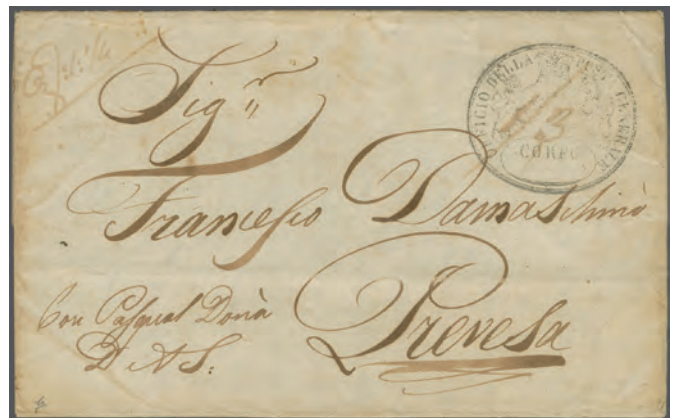 UFFICIO DELLA POSTA GENERALE
CORFU
Sig.r
Francesco Damaschinò
Prevesa
Con Pasqual Donà
D A S: